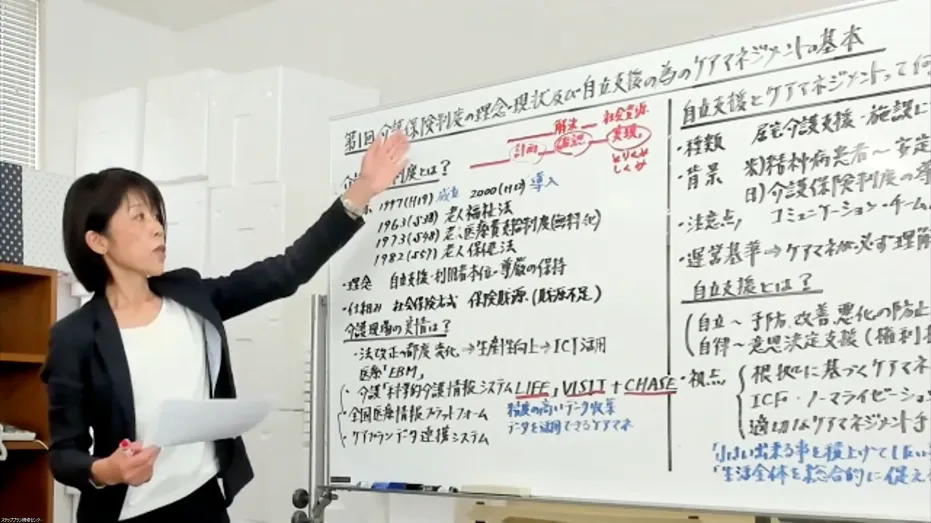 第1回 介護保険制度の理念・現状及び自立支援の為のケアマネジメントの基本
解決 社会資源
計画 実現
とりくみ
しくみ
制度とは?
1997(H19)成立 2000(H12)導入
1963(S38)老人福祉法
1973(S48)老人医療費支給制度(無料化)
1982(S57)老人保健法
・理念 自立支援・利用者本位・尊厳の保持
・仕組み 社会保険方式 保険財源(財源不足)
介護現場の実情は?
・法改正の都度変化→生産性向上→ICT活用
医療「EBM」
・介護「科学的介護情報システムLIFE, VISIT + CHASE
・全国医療情報プラットフォーム
・ケアプランデータ連携システム
精度の高いデータ収集
データを活用できるケアマネ
自立支援とケアマネジメントって何
・種類 居宅介護支援・施設に
・背景 米)精神病患者~安定
日)介護保険制度の導
・注意点 コミュニケーション・チーム
・運営基準→ケアマネが必ず理解
自立支援とは?
自立~予防、改善、悪化の防止
自律~意思決定支援(権利
・視点
根拠に基づくケアマネ
ICF・ノーマライゼーション
適切なケアマネジメント手
「小さい出来る事を積上げてしたい
「生活全体を総合的に捉え
ステップアップ研修センター